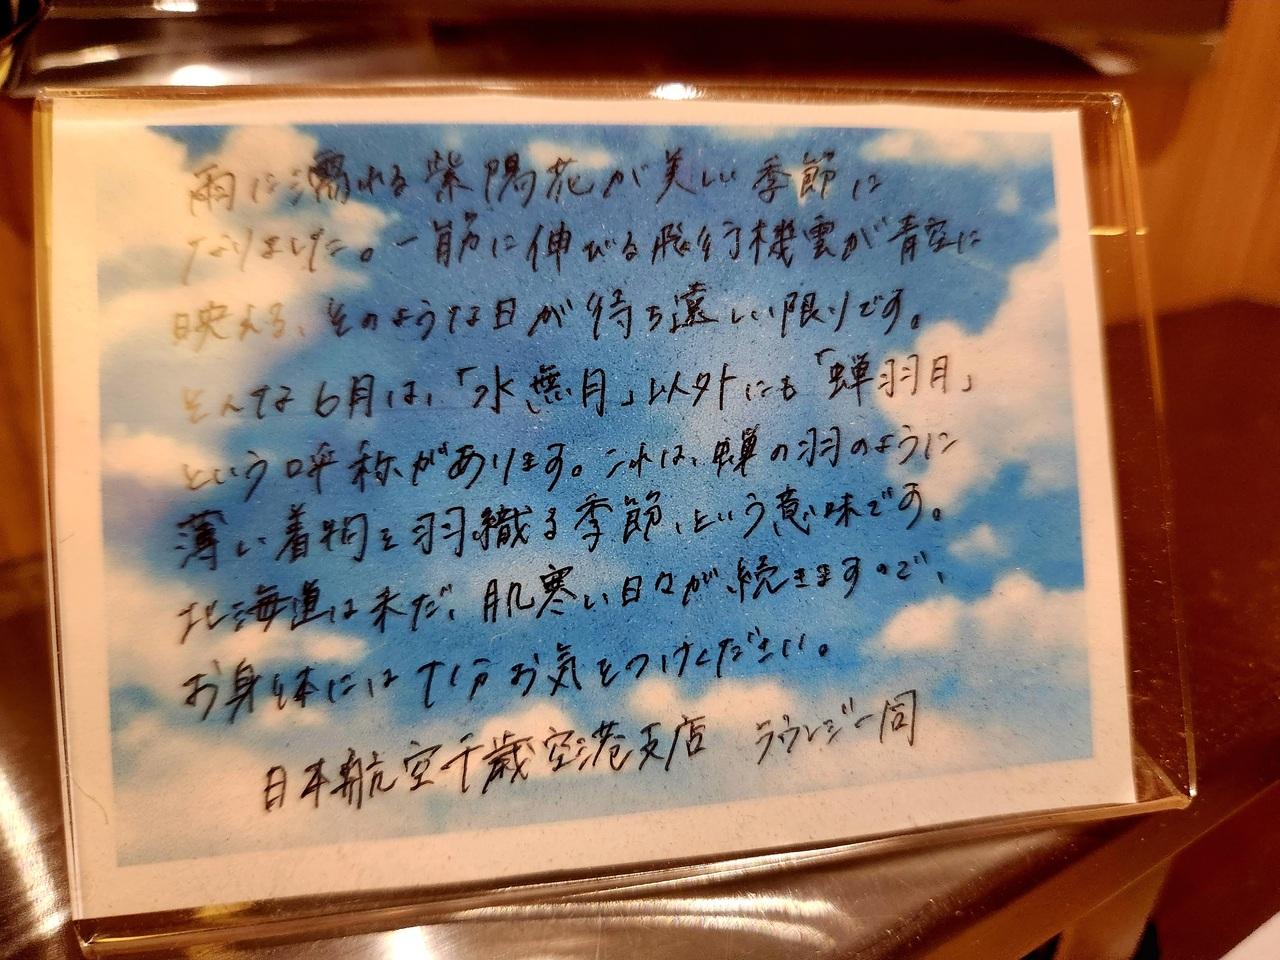 雨に濡れる紫陽花が美しい季節に
なりました。一筋に伸びる飛行機雲が青空に
映える、そのような日が待ち遠しい限りです。
そんな6月は、「水無月」以外にも「蝉羽月」
という呼称があります。これは、蝉の羽のように
薄い着物を羽織る季節、という意味です。
北海道は未だ、肌寒い日々が続きますので、
お身体には十分お気をつけください。
日本航空千歳空港支店 ラウンジ一同